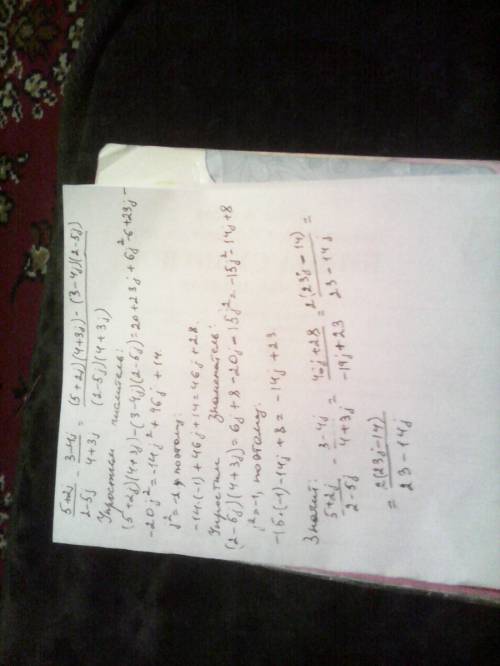 5+2j / 2-5j  3-4j / 4+3j = (5+2j)(4+3j)-(3-4j)(2-5j) / (2-5j)(4+3j)
Упростим числитель:
(5+2j)(4+3j)-(3-4j)(2-5j)=20+23j+6j²-6+23j-
-20j²=-14j²+46j+14.
j²=-1 поэтому:
-14·(-1)+46j+14=46j+28.
Упростим знаменатель:
(2-5j)(4+3j)=6j+8-20j-15j²=-15j²-14j+8
j²=-1, поэтому:
-15·(-1)-14j+8=-14j+23
Значит:
5+2j / 2-5j - 3-4j / 4+3j = 46j+28 / -14j+23 = 2(23j-14) / 23-14j =
= 2(23j-14) / 23-14j